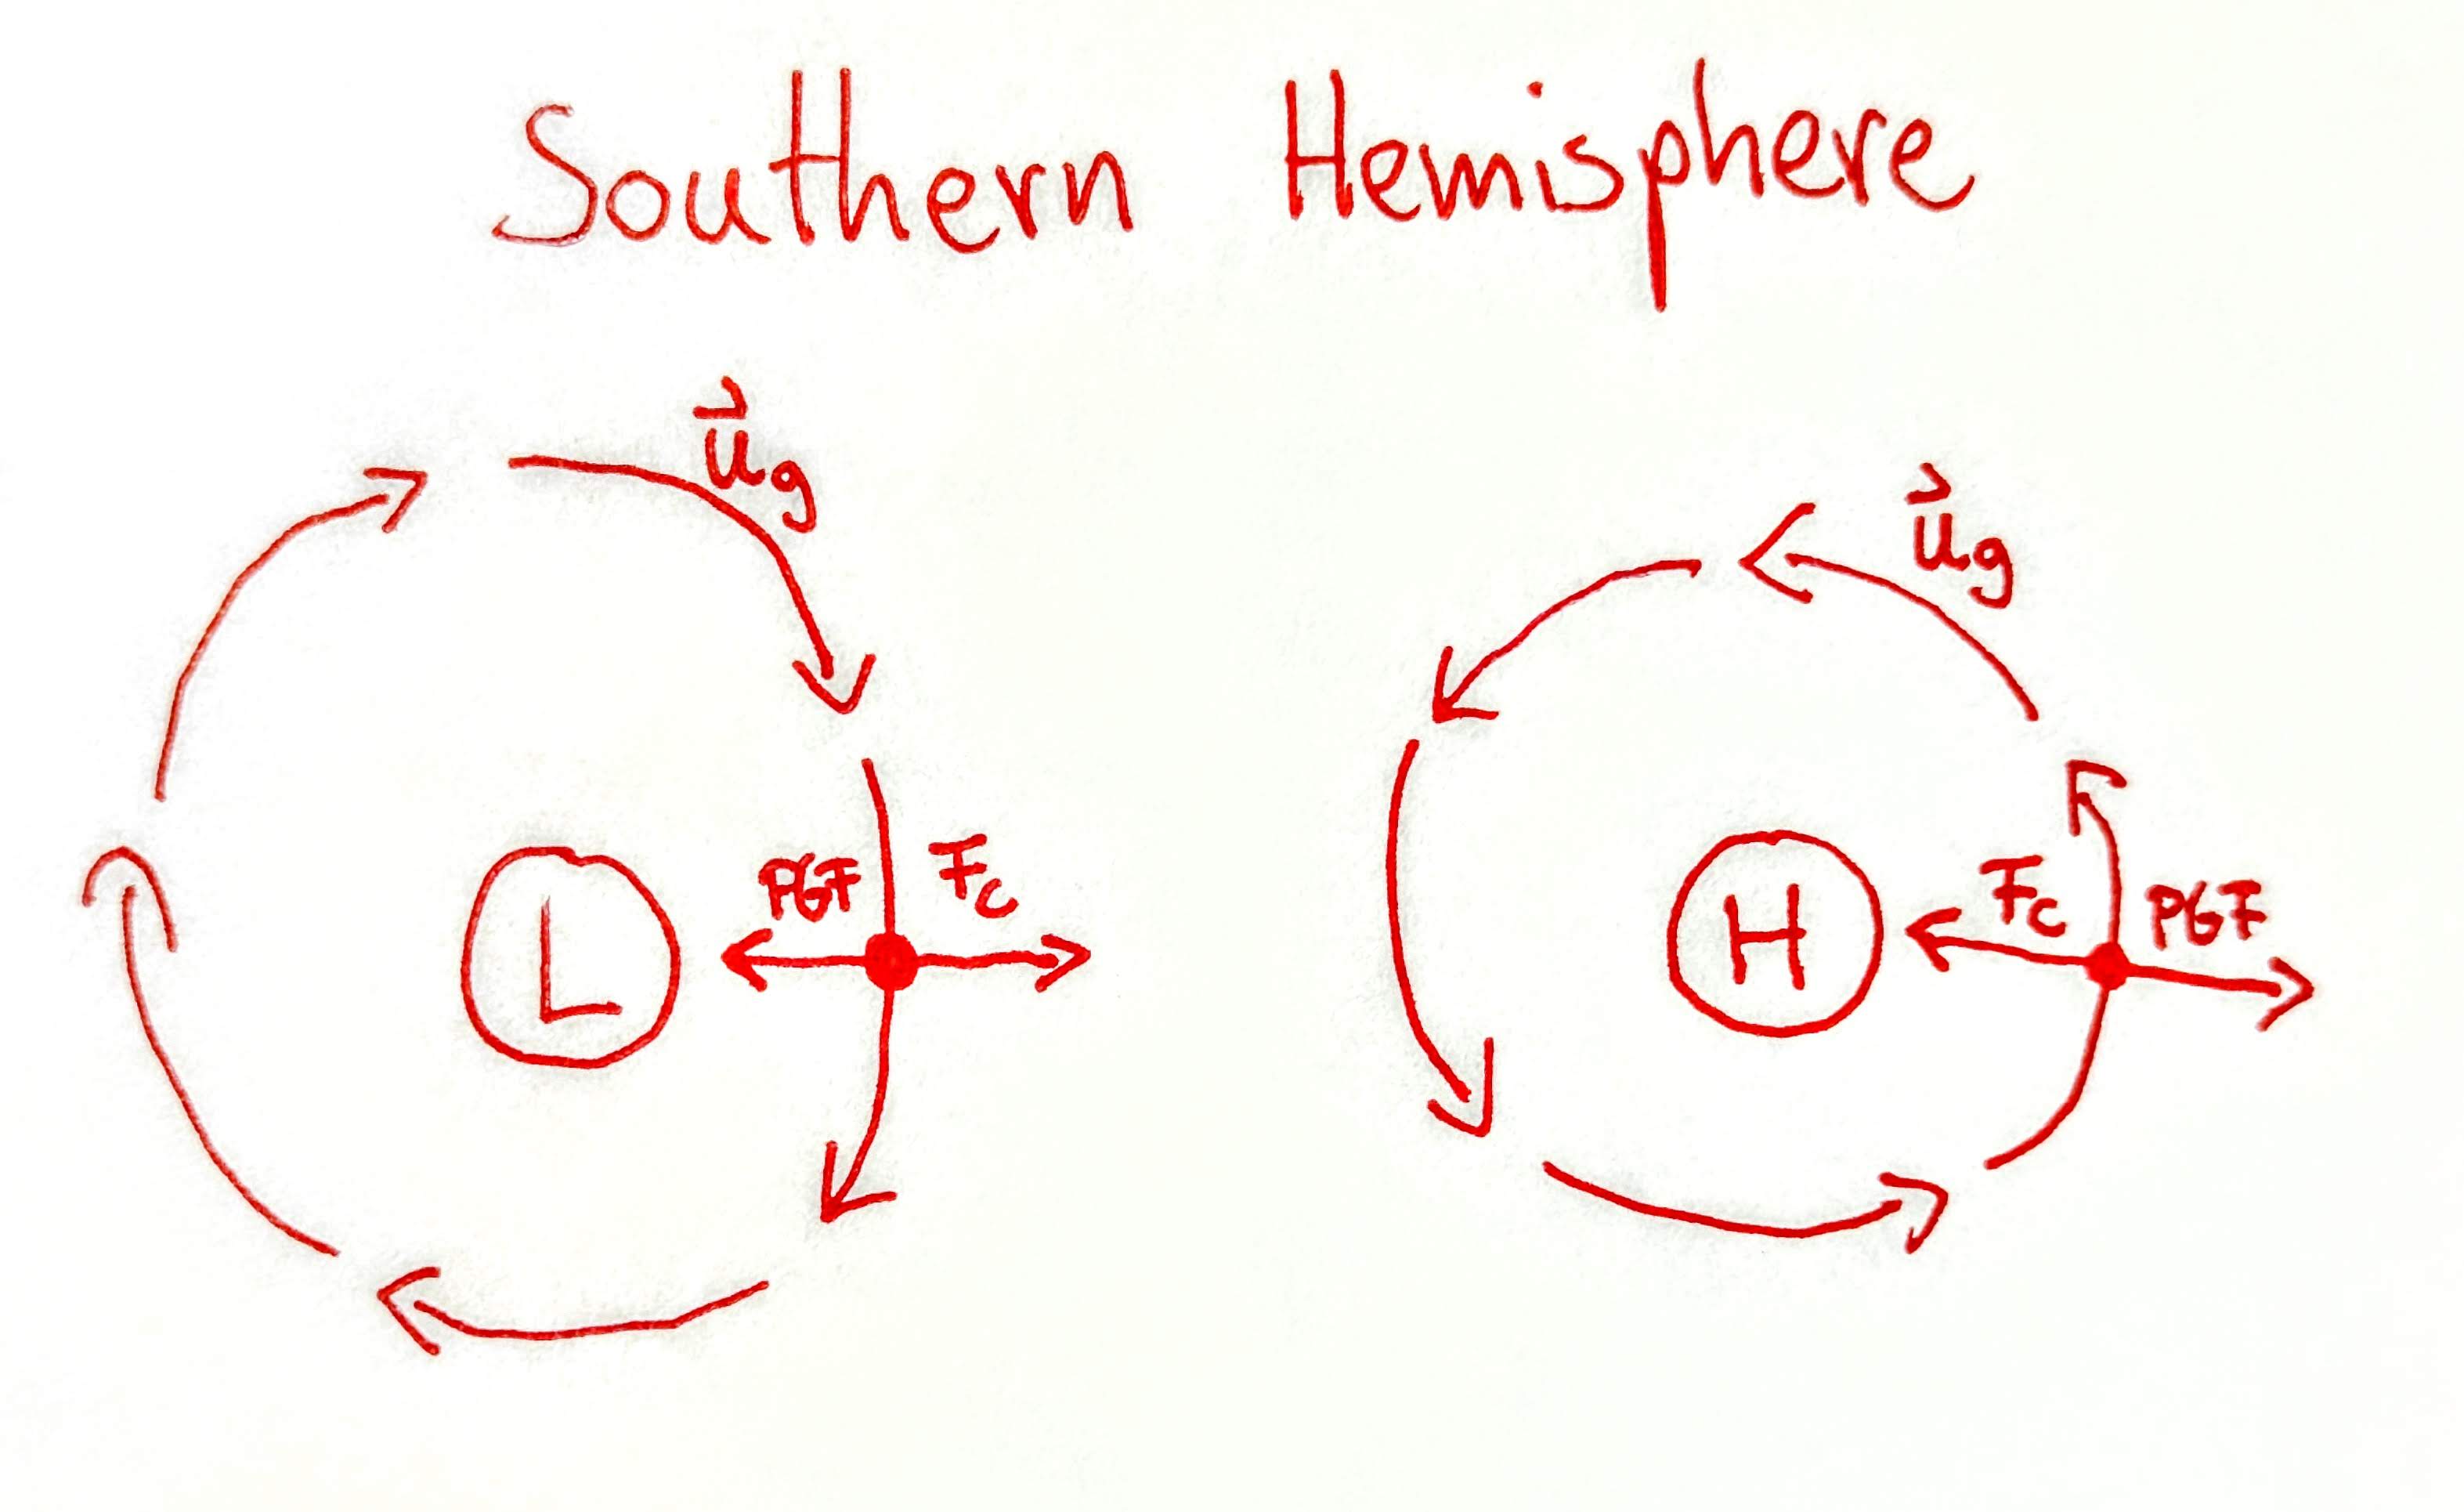 Southern Hemisphere
u⃗g
u⃗g
L
PGF
Fc
H
Fc
PGF